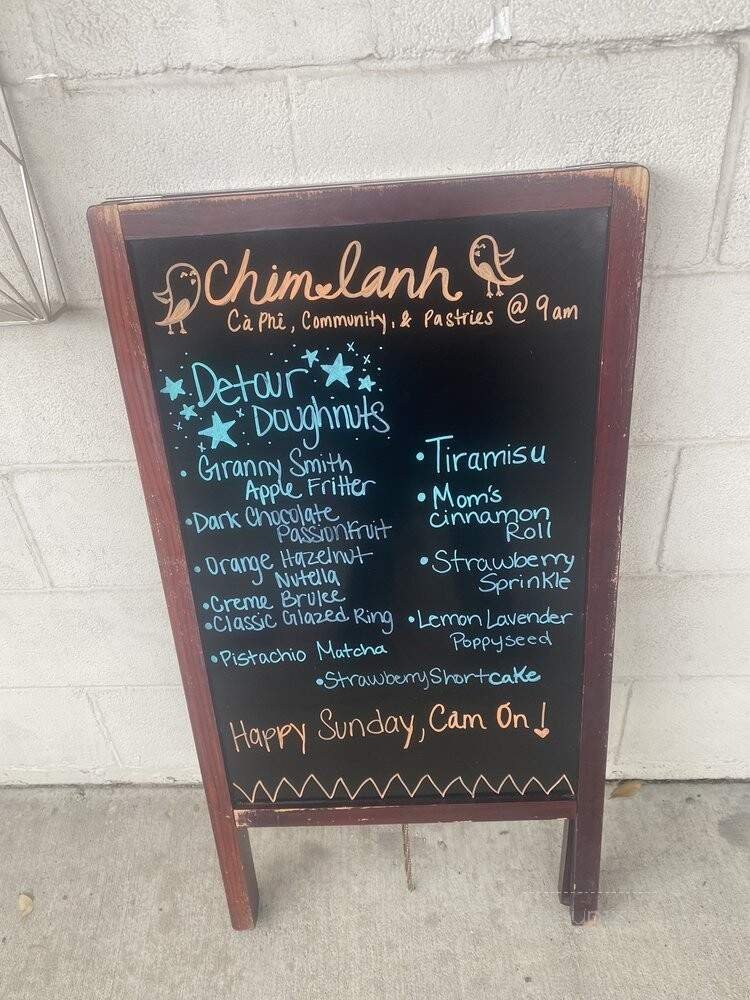 Chimlanh
Cà Phê, Community, & Pastries @ 9am
Detour
Doughnuts
• Granny Smith
Apple Fritter
• Dark Chocolate
Passionfruit
• Orange Hazelnut
Nutella
• Creme Brulee
• Classic Glazed Ring
• Pistachio Matcha
• Tiramisu
• Mom's
cinnamon
Roll
• Strawberry
Sprinkle
• Lemon Lavender
Poppyseed
• Strawberry Shortcake
Happy Sunday, Cảm Ơn!